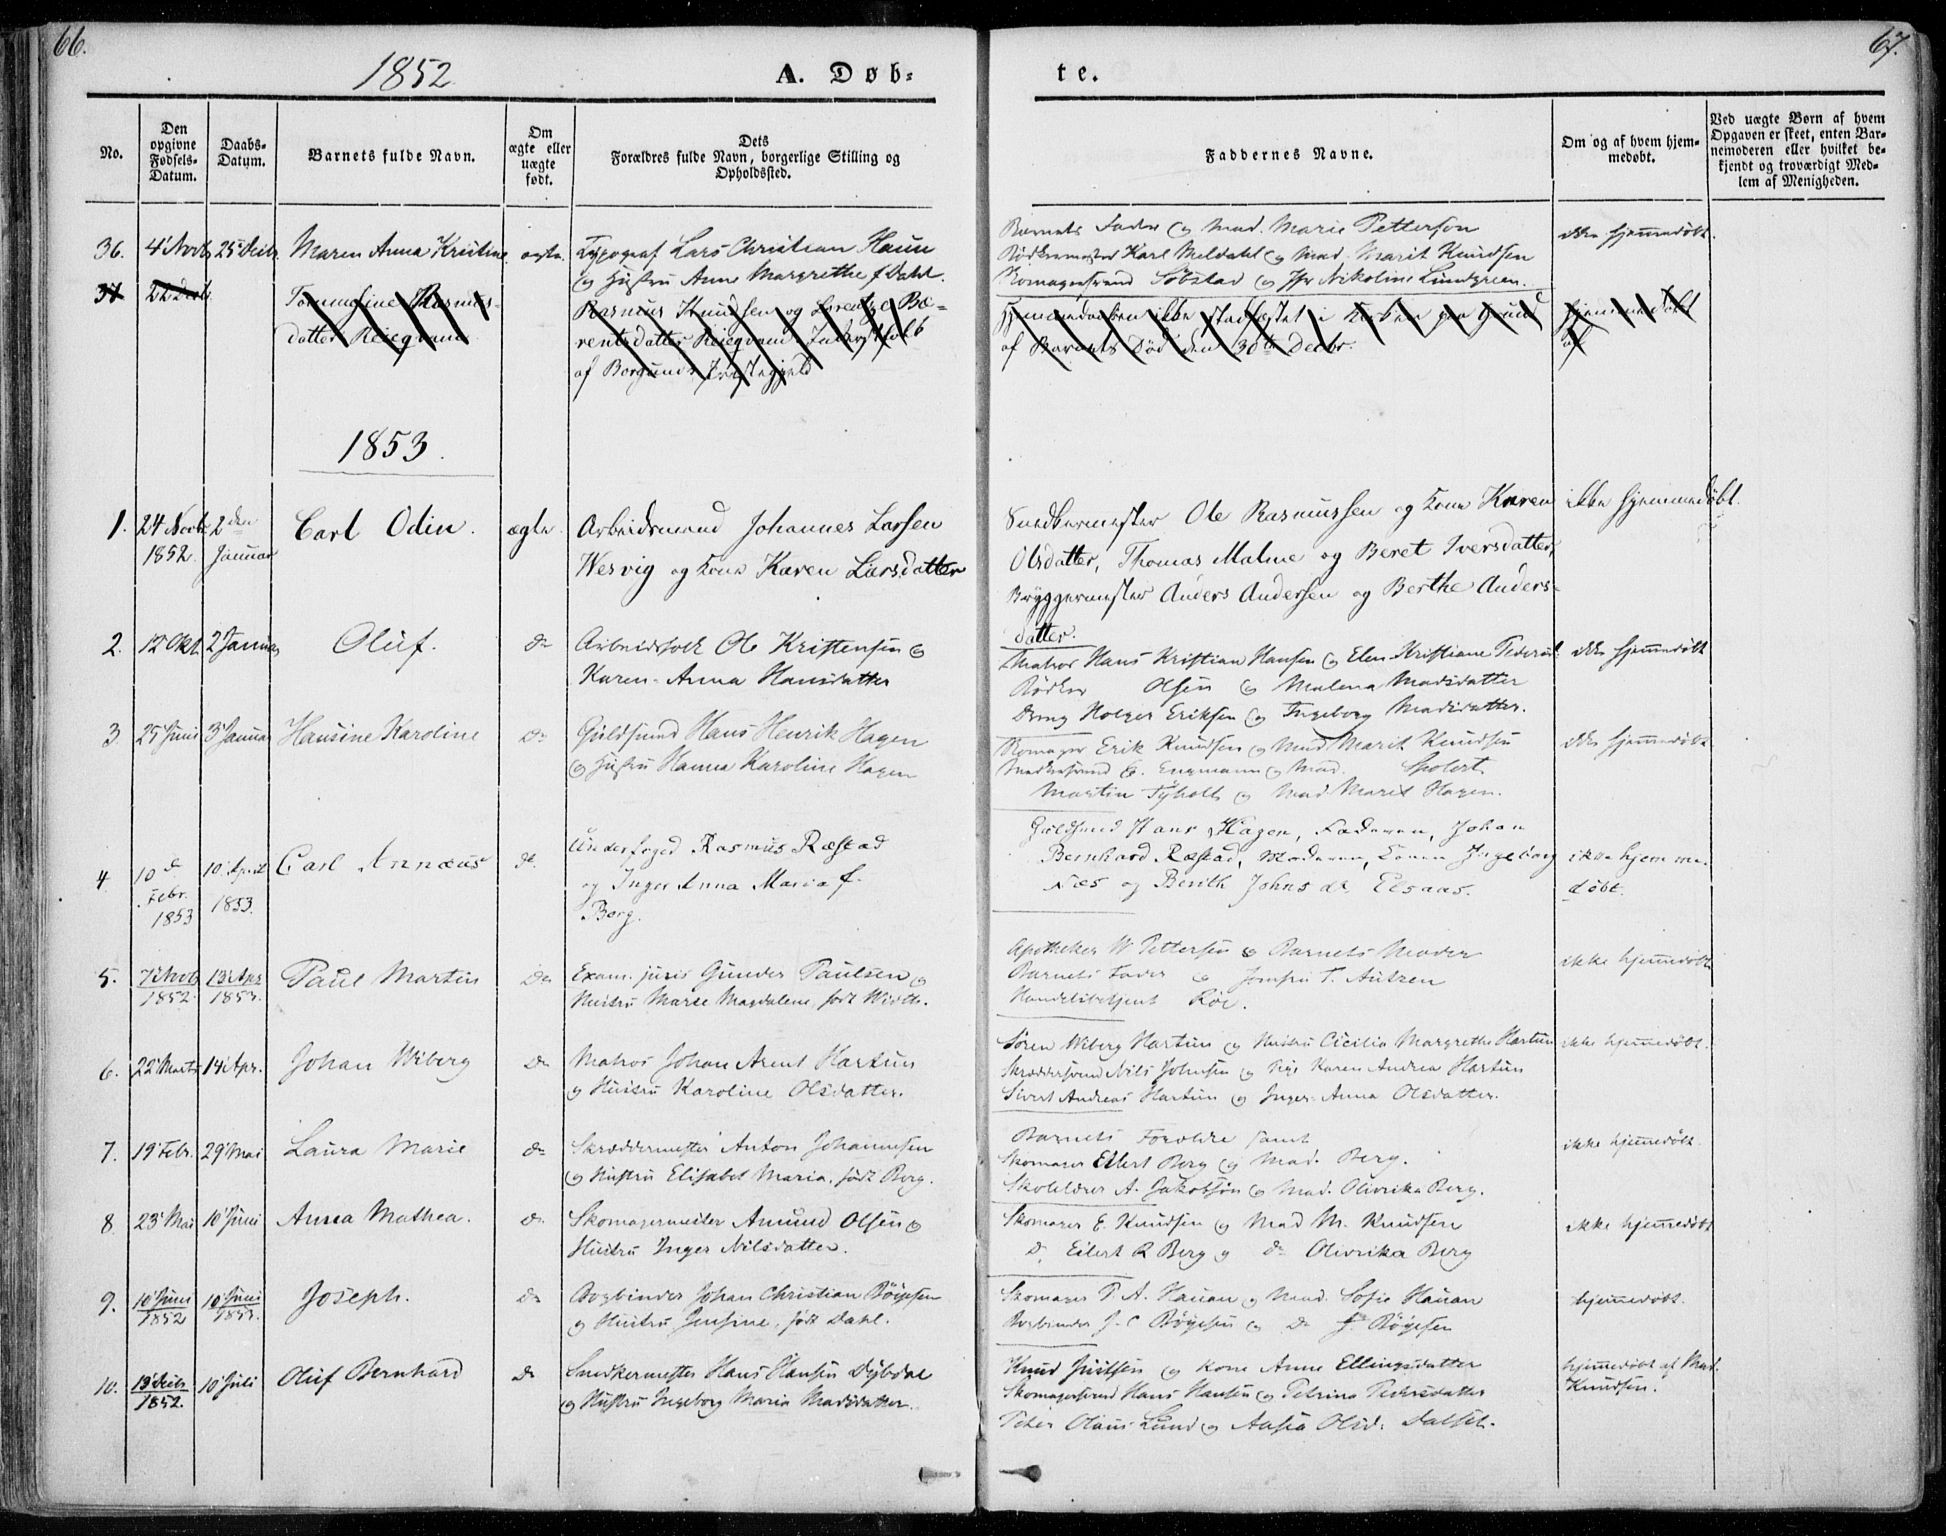 66.
1852
A. Døb-
No.
Den
opgivne
Fødsels-
Datum.
Daabs-
Datum.
Barnets fulde Navn.
Om
ægte eller
uægte
født.
Dets
Forældres fulde Navn, borgerlige Stilling og
Opholdssted.
36. 4' Novb 25' Decbr Maren Anna Kristine ægte. Typograf Lars Christian Haun
og Hustru Anne Margrethe f Dahl.
37 Tommesine Rasmus- Rasmus Knudsen og Lorentze Be-
datter Reiegvam rentsdatter Reiegvam Inderstfolk
af Borgund Præstegjeld
1853.
1. 24 Novbr 2den Carl Odin. ægte. Arbeidsmand Johannes Larsen
1852. Januar Wesvig og Kone Karen Larsdatter
2. 12 Okt. 2' Januar Oluf. do Arbeidsfolk Ole Kristensen og
Karen-Anna Hansdatter
3 25' Juni 3' Januar Hansine Karoline do Guldsmed Hans Henrik Hagen
og Hustru Hanna Karoline Hagen
4. 10 d 10 April Carl Annæus do. Underfoged Rasmus Ræstad
Febr. 1853. og Inger Anna Maria f.
1853 Berg.
5. 7' Novb 13' Apr Paul Martin Do Exam. juris Gunder Paulsen og
1852. 1853. Hustru Marie Magdalene, født Wirth.
6. 22' Marts 14' Apr. Johan Wiberg Do Matros Johan Arent Hartun
og Hustru Karoline Olsdatter.
7. 19' Febr. 29' Mai Laura Marie do Skræddermester Anton Johannesen
og Hustru Elisabet Maria, født Berg.
8. 23' Mai 10' Juni Anna Mathea. do. Skomagermester Amund Olsen og
Hustru Inger Nilsdatter.
9. 10' Juni 10' Juni Joseph. do Bogbinder Johan Christian Böyesen
1852 1853. og Hustru Jensine, født Dahl.
10. 13' Decb 10' Juli Oluf Bernhard do Snedkermester Hans Hansen Dybdal
1852. og Hustru Ingeborg Maria Madsdatter.
67.
te.
Faddernes Navne.
Om og af hvem hjem-
medøbt.
Ved uægte Børn af hvem
Opgaven er skeet, enten Bar-
nemoderen eller hvilket be-
kjendt og troværdigt Med-
lem af Menigheden.
Barnets Fader og Mad. Marie Petterson ikke hjemmedøbt.
Bødkermester Karl Meldahl og Mad. Marit Knudsen
Skomagersvend Söbstad og Jfr Nikoline Lundgreen.
Hjemmedaaben ikke stadfæstet i Kirken paa Grund hjemmedøbt
af Barnets Död den 30te Decbr. af
Snedkermester Ole Rasmussen og Kone Karen ikke hjemmedøbt.
Olsdatter, Thomas Malme og Beret Iversdatter,
Bryggermester Anders Andersen og Berthe Anders-
datter.
Matros Hans Kristian Hansen og Elen Kristiane Pedersd. ikke hjemmedøbt
Bødker Olsen og Malena Madsdatter
Dreng Holger Eriksen og Ingeborg Madsdatter.
Skomager Erik Knudsen og Mad Marit Knudsen ikke hjemmedøbt
Snedkersvend C. Engmann og Mad. Spolert
Martin Tyholt og Mad Marit Hagen.
Guldsmed Hans Hagen, Faderen, Johan
Bernhard Ræstad, Moderen, Konen Ingeborg ikke hjemme-
Næs og Berith Johns dr. Elsaas. døbt.
Apotheker W Pettersen og Barnets Moder ikke hjemmedøbt
Barnets Fader og Jomfru T. Autzen
Handelsbetjent Röe.
Sören Wiberg Hartun og Hustru Cicilia Margrethe Hartun ikke hjemmedøbt.
Skræddersvend Nils Johnsen og Pige Karen Andrea Hartun
Sivert Andreas Hartun og Inger-Anna Olsdatter.
Barnets Forældre samt ikke hjemmedøbt.
Skomager Eilert Berg og Mad. Berg.
Skolelærer A. Jakobsön og Mad. Olivrika Berg.
Skomager E. Knudsen og Mad M. Knudsen ikke hjemmedøbt
Do Eilert R Berg og do Olivrika Berg
Skomager P. A. Hauan og Mad. Sofie Hauan hjemmedøbt.
Bogbinder J. C Böyesen og Do J. Böyesen
Knud Justsen og Kone Anne Ellingsdatter hjemmedøbt af Mad.
Skomagersvend Hans Hansen og Petrina Pedersdatter Knudsen.
Peter Olaus Lund og Aasia Olsd. Dalset.